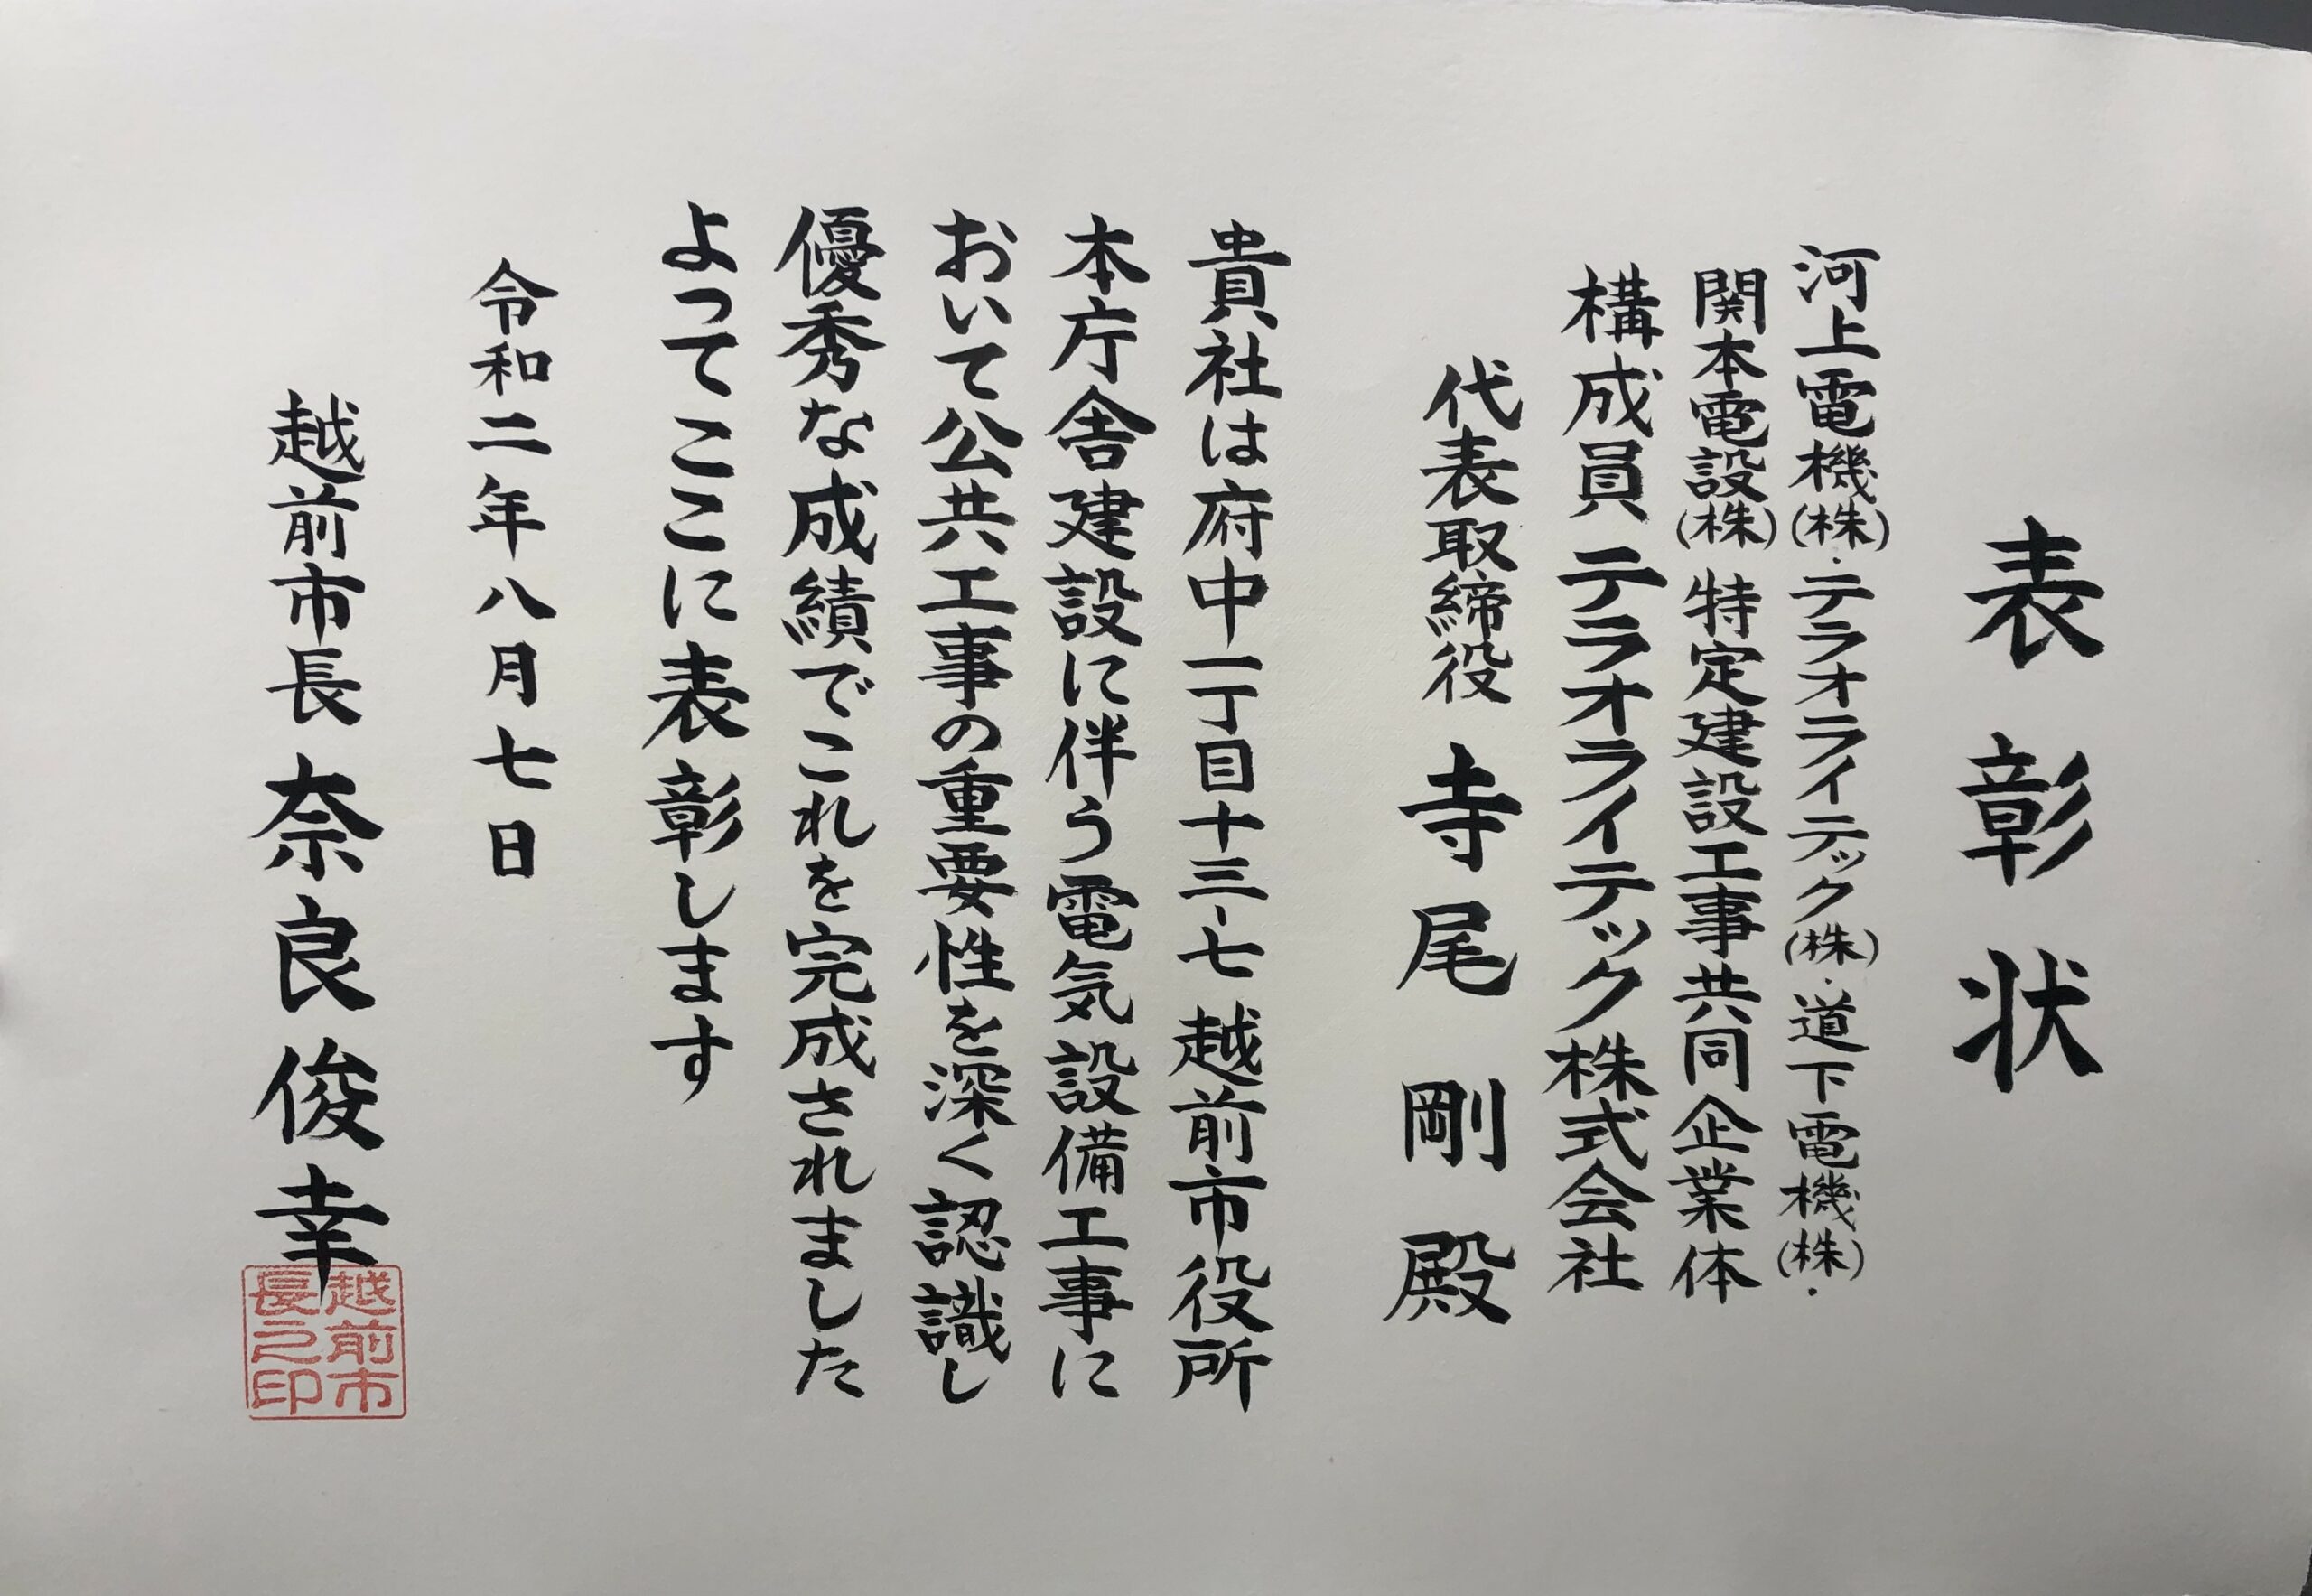 表彰状
河上電機(株)・テラオライテック(株)・道下電機(株)・
関本電設(株)特定建設工事共同企業体
構成員 テラオライテック株式会社
代表取締役 寺尾剛殿
貴社は府中一丁目十三-七越前市役所
本庁舎建設に伴う電気設備工事に
おいて公共工事の重要性を深く認識し
優秀な成績でこれを完成されました
よってここに表彰します
令和二年八月七日
越前市長 奈良俊幸
越前市
長之印